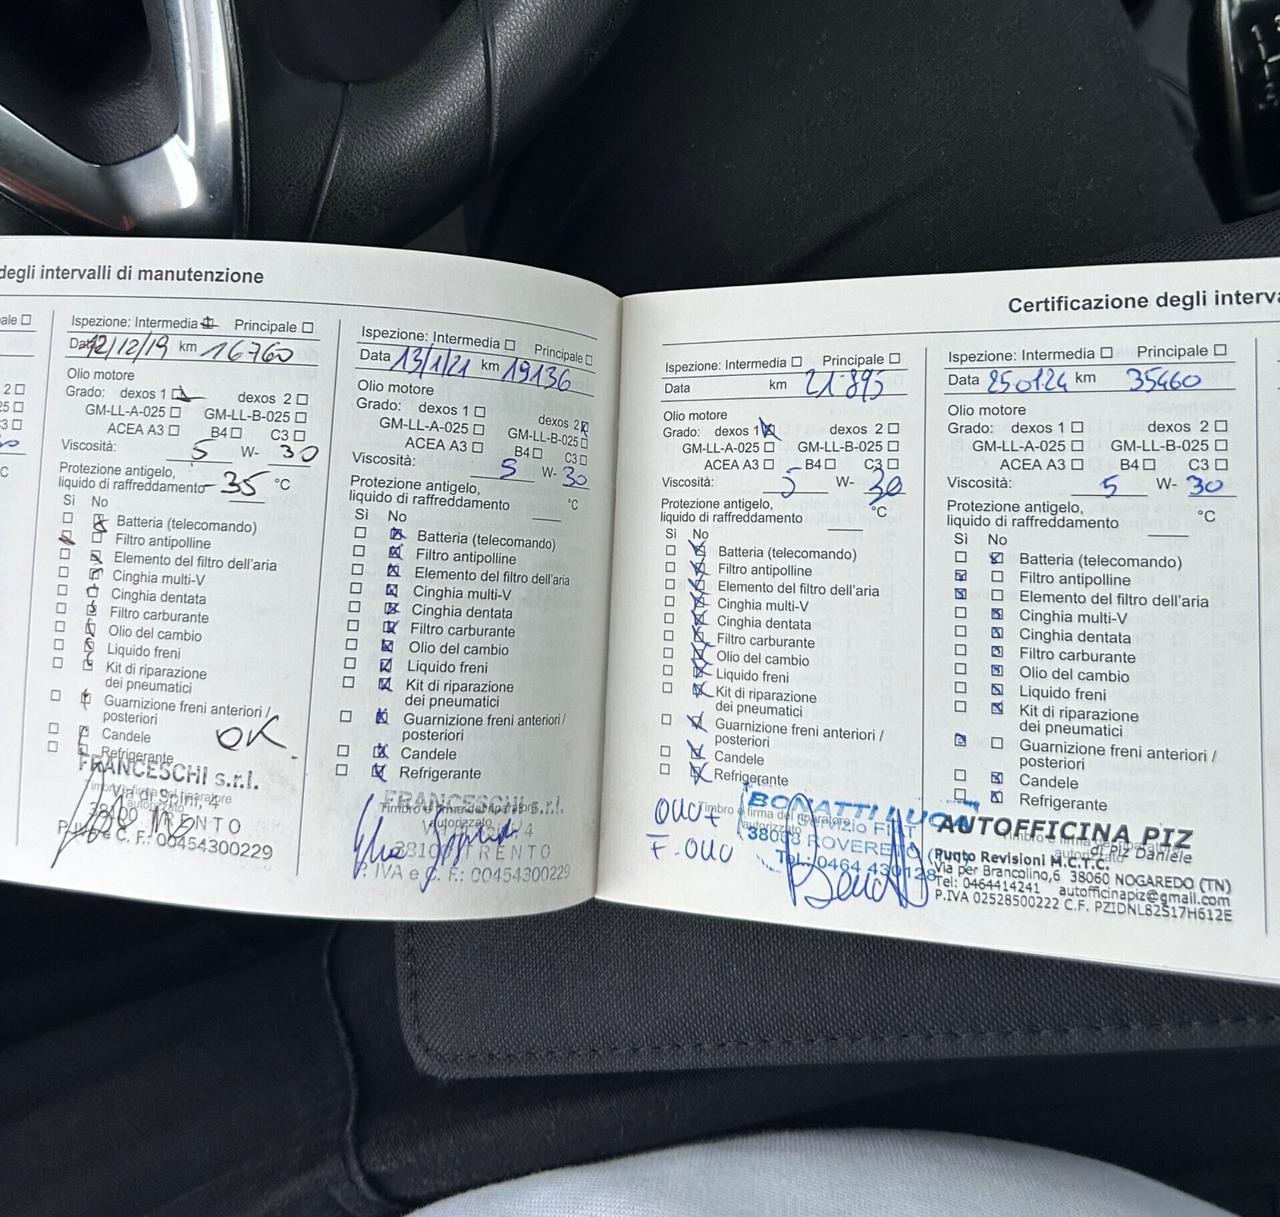 degli intervalli di manutenzione
ale
2
25
3
°C
Ispezione: Intermedia Principale
Data 12/12/19 km 16760
Olio motore
Grado: dexos 1 dexos 2
GM-LL-A-025 GM-LL-B-025
ACEA A3 B4 C3
Viscosità: 5 W- 30
Protezione antigelo,
liquido di raffreddamento -35 °C
Sì No
Batteria (telecomando)
Filtro antipolline
Elemento del filtro dell'aria
Cinghia multi-V
Cinghia dentata
Filtro carburante
Olio del cambio
Liquido freni
Kit di riparazione
dei pneumatici
Guarnizione freni anteriori /
posteriori
Candele
OK
Refrigerante
FRANCESCHI s.r.l.
Via di Spini, 4
Timbro e firma del riparatore
autorizzato
TRENTO
P. IVA e C. F.: 00454300229
Ispezione: Intermedia Principale
Data 13/1/21 km 19136
Olio motore
Grado: dexos 1 dexos 2
GM-LL-A-025 GM-LL-B-025
ACEA A3 B4 C3
Viscosità: 5 W- 30
Protezione antigelo,
liquido di raffreddamento °C
Sì No
Batteria (telecomando)
Filtro antipolline
Elemento del filtro dell'aria
Cinghia multi-V
Cinghia dentata
Filtro carburante
Olio del cambio
Liquido freni
Kit di riparazione
dei pneumatici
Guarnizione freni anteriori /
posteriori
Candele
Refrigerante
FRANCESCHI s.r.l.
Timbro e firma del riparatore
autorizzato
4
TRENTO
P. IVA e C. F.: 00454300229
Certificazione degli interva
Ispezione: Intermedia Principale
Data km 21895
Olio motore
Grado: dexos 1 dexos 2
GM-LL-A-025 GM-LL-B-025
ACEA A3 B4 C3
Viscosità: 5 W- 30
Protezione antigelo,
liquido di raffreddamento °C
Sì No
Batteria (telecomando)
Filtro antipolline
Elemento del filtro dell'aria
Cinghia multi-V
Cinghia dentata
Filtro carburante
Olio del cambio
Liquido freni
Kit di riparazione
dei pneumatici
Guarnizione freni anteriori /
posteriori
Candele
Refrigerante
BONATTI LUCA
Timbro e firma del riparatore
autorizzato
Servizio FIAT
38068 ROVERETO
Tel. 0464 430128
F. OLIO
Ispezione: Intermedia Principale
Data 250124 km 35460
Olio motore
Grado: dexos 1 dexos 2
GM-LL-A-025 GM-LL-B-025
ACEA A3 B4 C3
Viscosità: 5 W- 30
Protezione antigelo,
liquido di raffreddamento °C
Sì No
Batteria (telecomando)
Filtro antipolline
Elemento del filtro dell'aria
Cinghia multi-V
Cinghia dentata
Filtro carburante
Olio del cambio
Liquido freni
Kit di riparazione
dei pneumatici
Guarnizione freni anteriori /
posteriori
Candele
Refrigerante
AUTOFFICINA PIZ
di Piz Daniele
Punto Revisioni M.C.T.C.
Via per Brancolino,6 38060 NOGAREDO (TN)
Tel: 0464414241 autofficinapiz@gmail.com
P.IVA 02528500222 C.F. PZIDNL82S17H612E